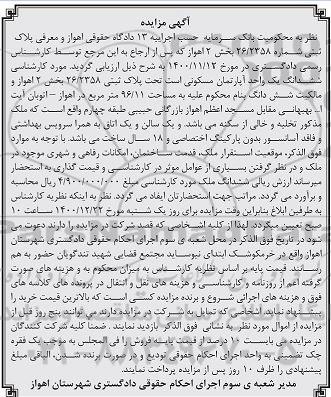 آگهی مزایده
نظر به محکومیت بانک سرمایه جنب اجراییه ۱۳ دادگاه حقوقی اهواز و معرفی پلاک
ثبتی شماره ۲۶/۲۳۵۸ بخش ۲ اهواز که پس از ارجاع به این مرجع توسط کارشناس
رسمی دادگستری در مورخ ۱۴۰۰/۱۱/۱۲ به شرح ذیل ارزیابی گردید. مورد کارشناسی
ششدانگ یک واحد آپارتمان مسکونی است تحت پلاک ثبتی ۲۶/۲۳۵۸ بخش ۲ اهواز و
مالکیت شش دانگ بنام محکوم علیه به مساحت ۹۶/۱۱ متر مربع در اهواز – اتوبان آیت
ا... بهبهانی مقابل مسجد اعظم اهواز بازرگانی حبیبی طبقه چهارم واقع است که ملک
مذکور تخلیه و خالی از سکنه می باشد. و یک سالن و یک اتاق به همرا سرویس بهداشتی
و فاقد آسانسور بدون پارکینگ اختصاصی و ۱۸ سال ساخت می باشد. با توجه به موارد
فوق الذکر، موقعیت استقرار ملک، قدمت ساختمان، امکانات رفاهی و شهری موجود در
ملک و در نظر گرفتن بسیاری از عوامل موثر در کارشناسی و قیمت گذاری به استحضار
میرساند ارزش ریالی ششدانگ ملک مورد کارشناسی مبلغ ۴/۹۰۰/۰۰۰/۰۰۰ ریال محاسبه
و برآورد می گردد. مراتب جهت استحضارتان ایفاد می گردد. نظر به اینکه نظریه کارشناس
به طرفین ابلاغ بنابراین وقت مزایده برای روز یک شنبه مورخ ۱۴۰۰/۱۲/۲۲ ساعت ۱۰
صبح تعیین میگردد. لهذا از کلیه اشخاصی که قصد شرکت در مزایده را دارند دعوت می
شود در تاریخ فوق الذکر در محل شعبه ی سوم اجرای احکام حقوقی دادگستری شهرستان
اهواز واقع در خرمکوشک ابتدای نیوساید مجتمع قضایی شهید تندگویان حضور به هم
رسانند. قیمت پایه بر اساس نظریه کارشناس به میزان محکوم به و هزینه های صورت
گرفته اعم از روزنامه و کارشناسی و هزینه های نقل و انتقال در پرونده های کلاسه های
فوق و هزینه های اجرائی شروع و برنده مزایده کسی است که بالاترین قیمت خرید را
پیشنهاد نماید. اشخاصی که تمایل به شرکت در مزایده دارند می توانند پنج روز قبل از
مزایده از اموال مورد نظر به نشانی فوق الذکر بازدید نمایند. ضمنا کلیه شرکت کنندگان
در مزایده می بایست ۱۰ درصد از قیمت پایه فروش را فی المجلس به موجب یک فقره
چک تضمینی به واحد اجرای احکام حقوقی تودیع و در صورت برنده شدن، الباقی مبلغ
پیشنهادی را ظرف ۱۰ روز پس از مزایده پرداخت نمایند.
مدیر شعبه ی سوم اجرای احکام حقوقی دادگستری شهرستان اهواز